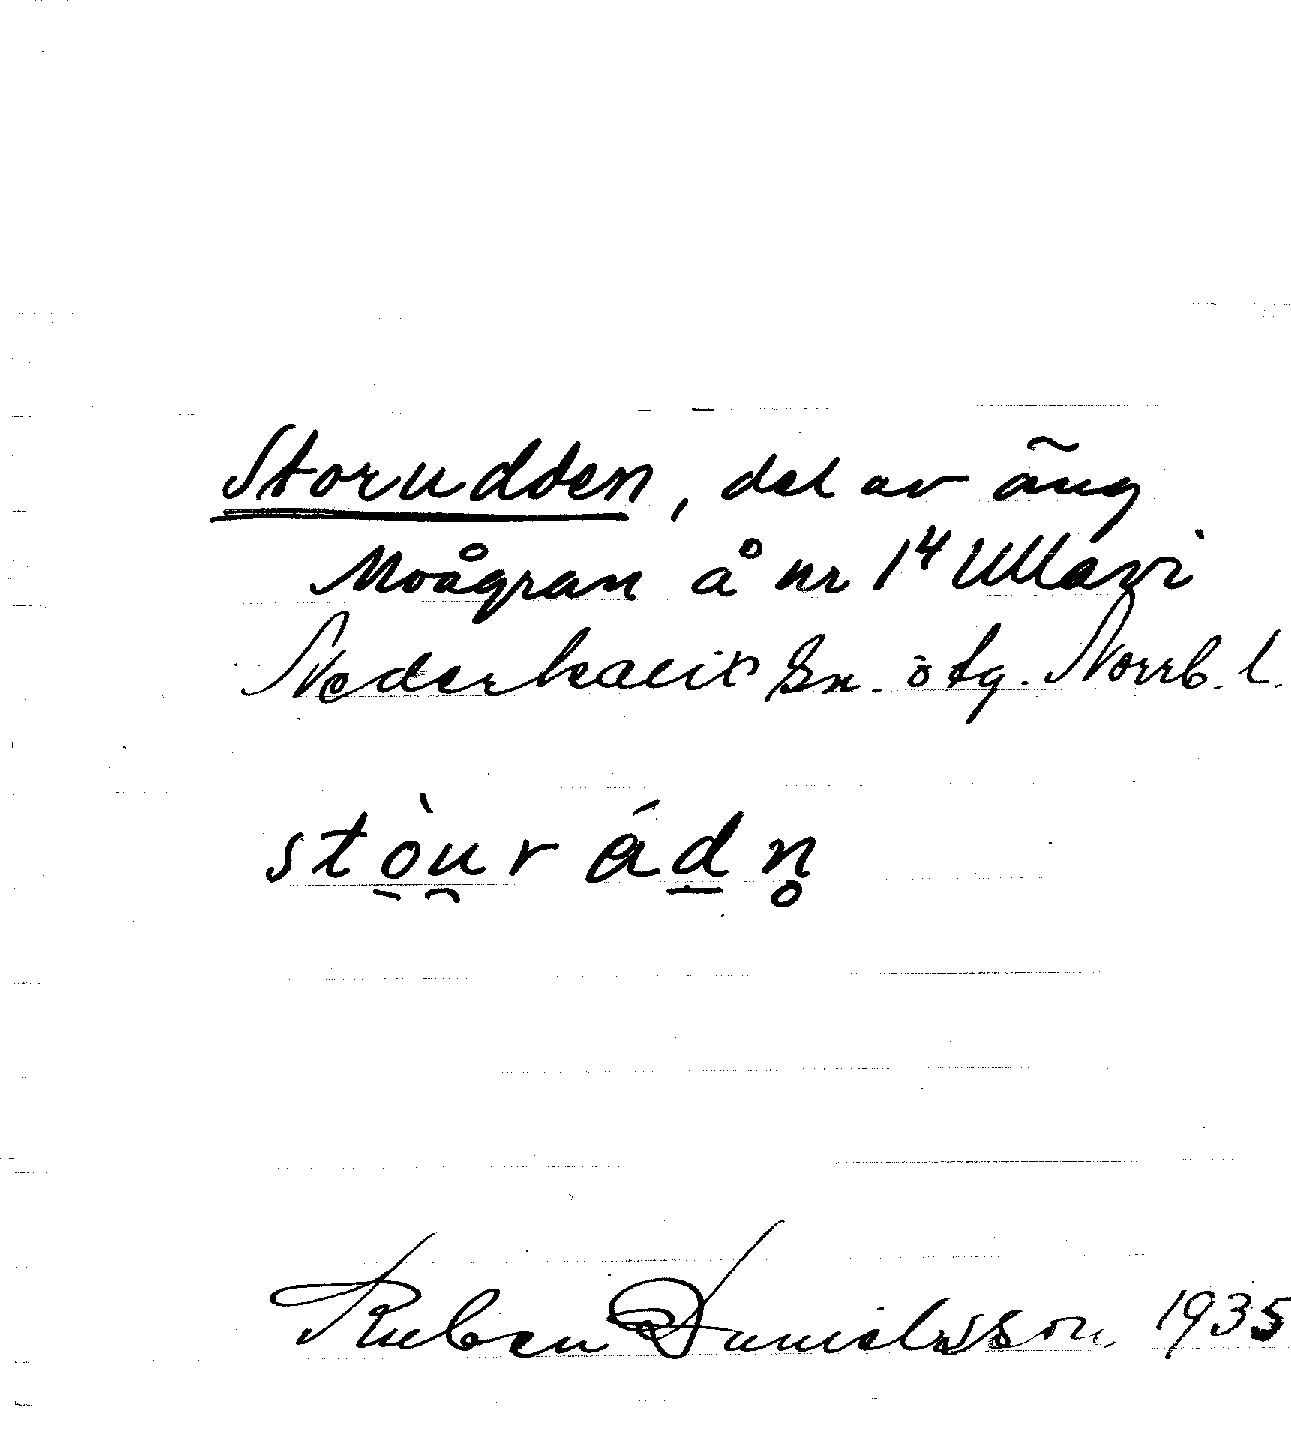 Storudden, del av äng
Moågran å nr 1⁴ Ullavi
Nederkalix sn. ö tg. Norrb. l.
stò̠u̯r ád̠n̥
Ruben Danielsson 1935